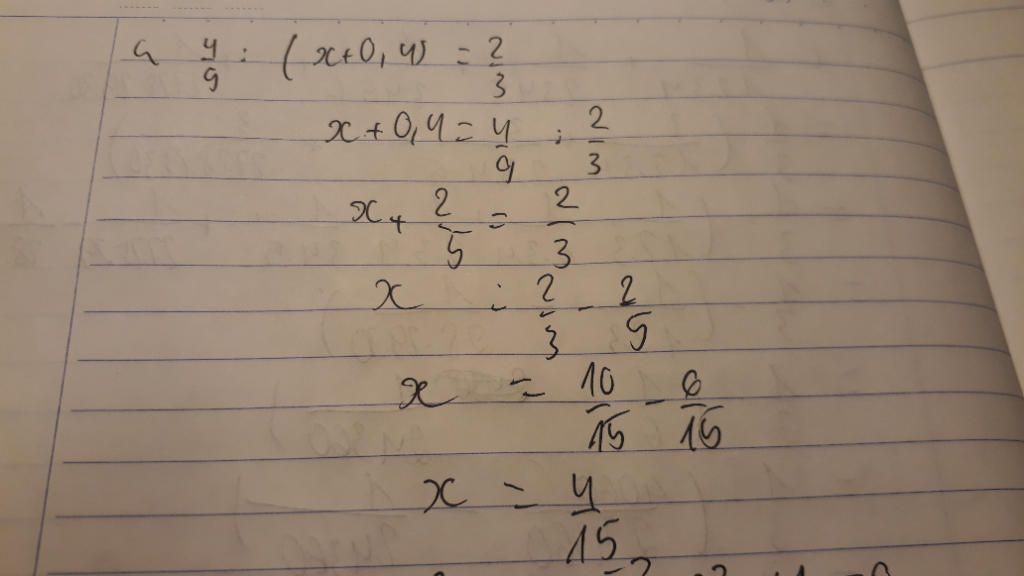 4/9 : (x+0,4) = 2/3
x+0,4 = 4/9 : 2/3
x + 2/5 = 2/3
x = 2/3 - 2/5
x = 10/15 - 6/15
x = 4/15